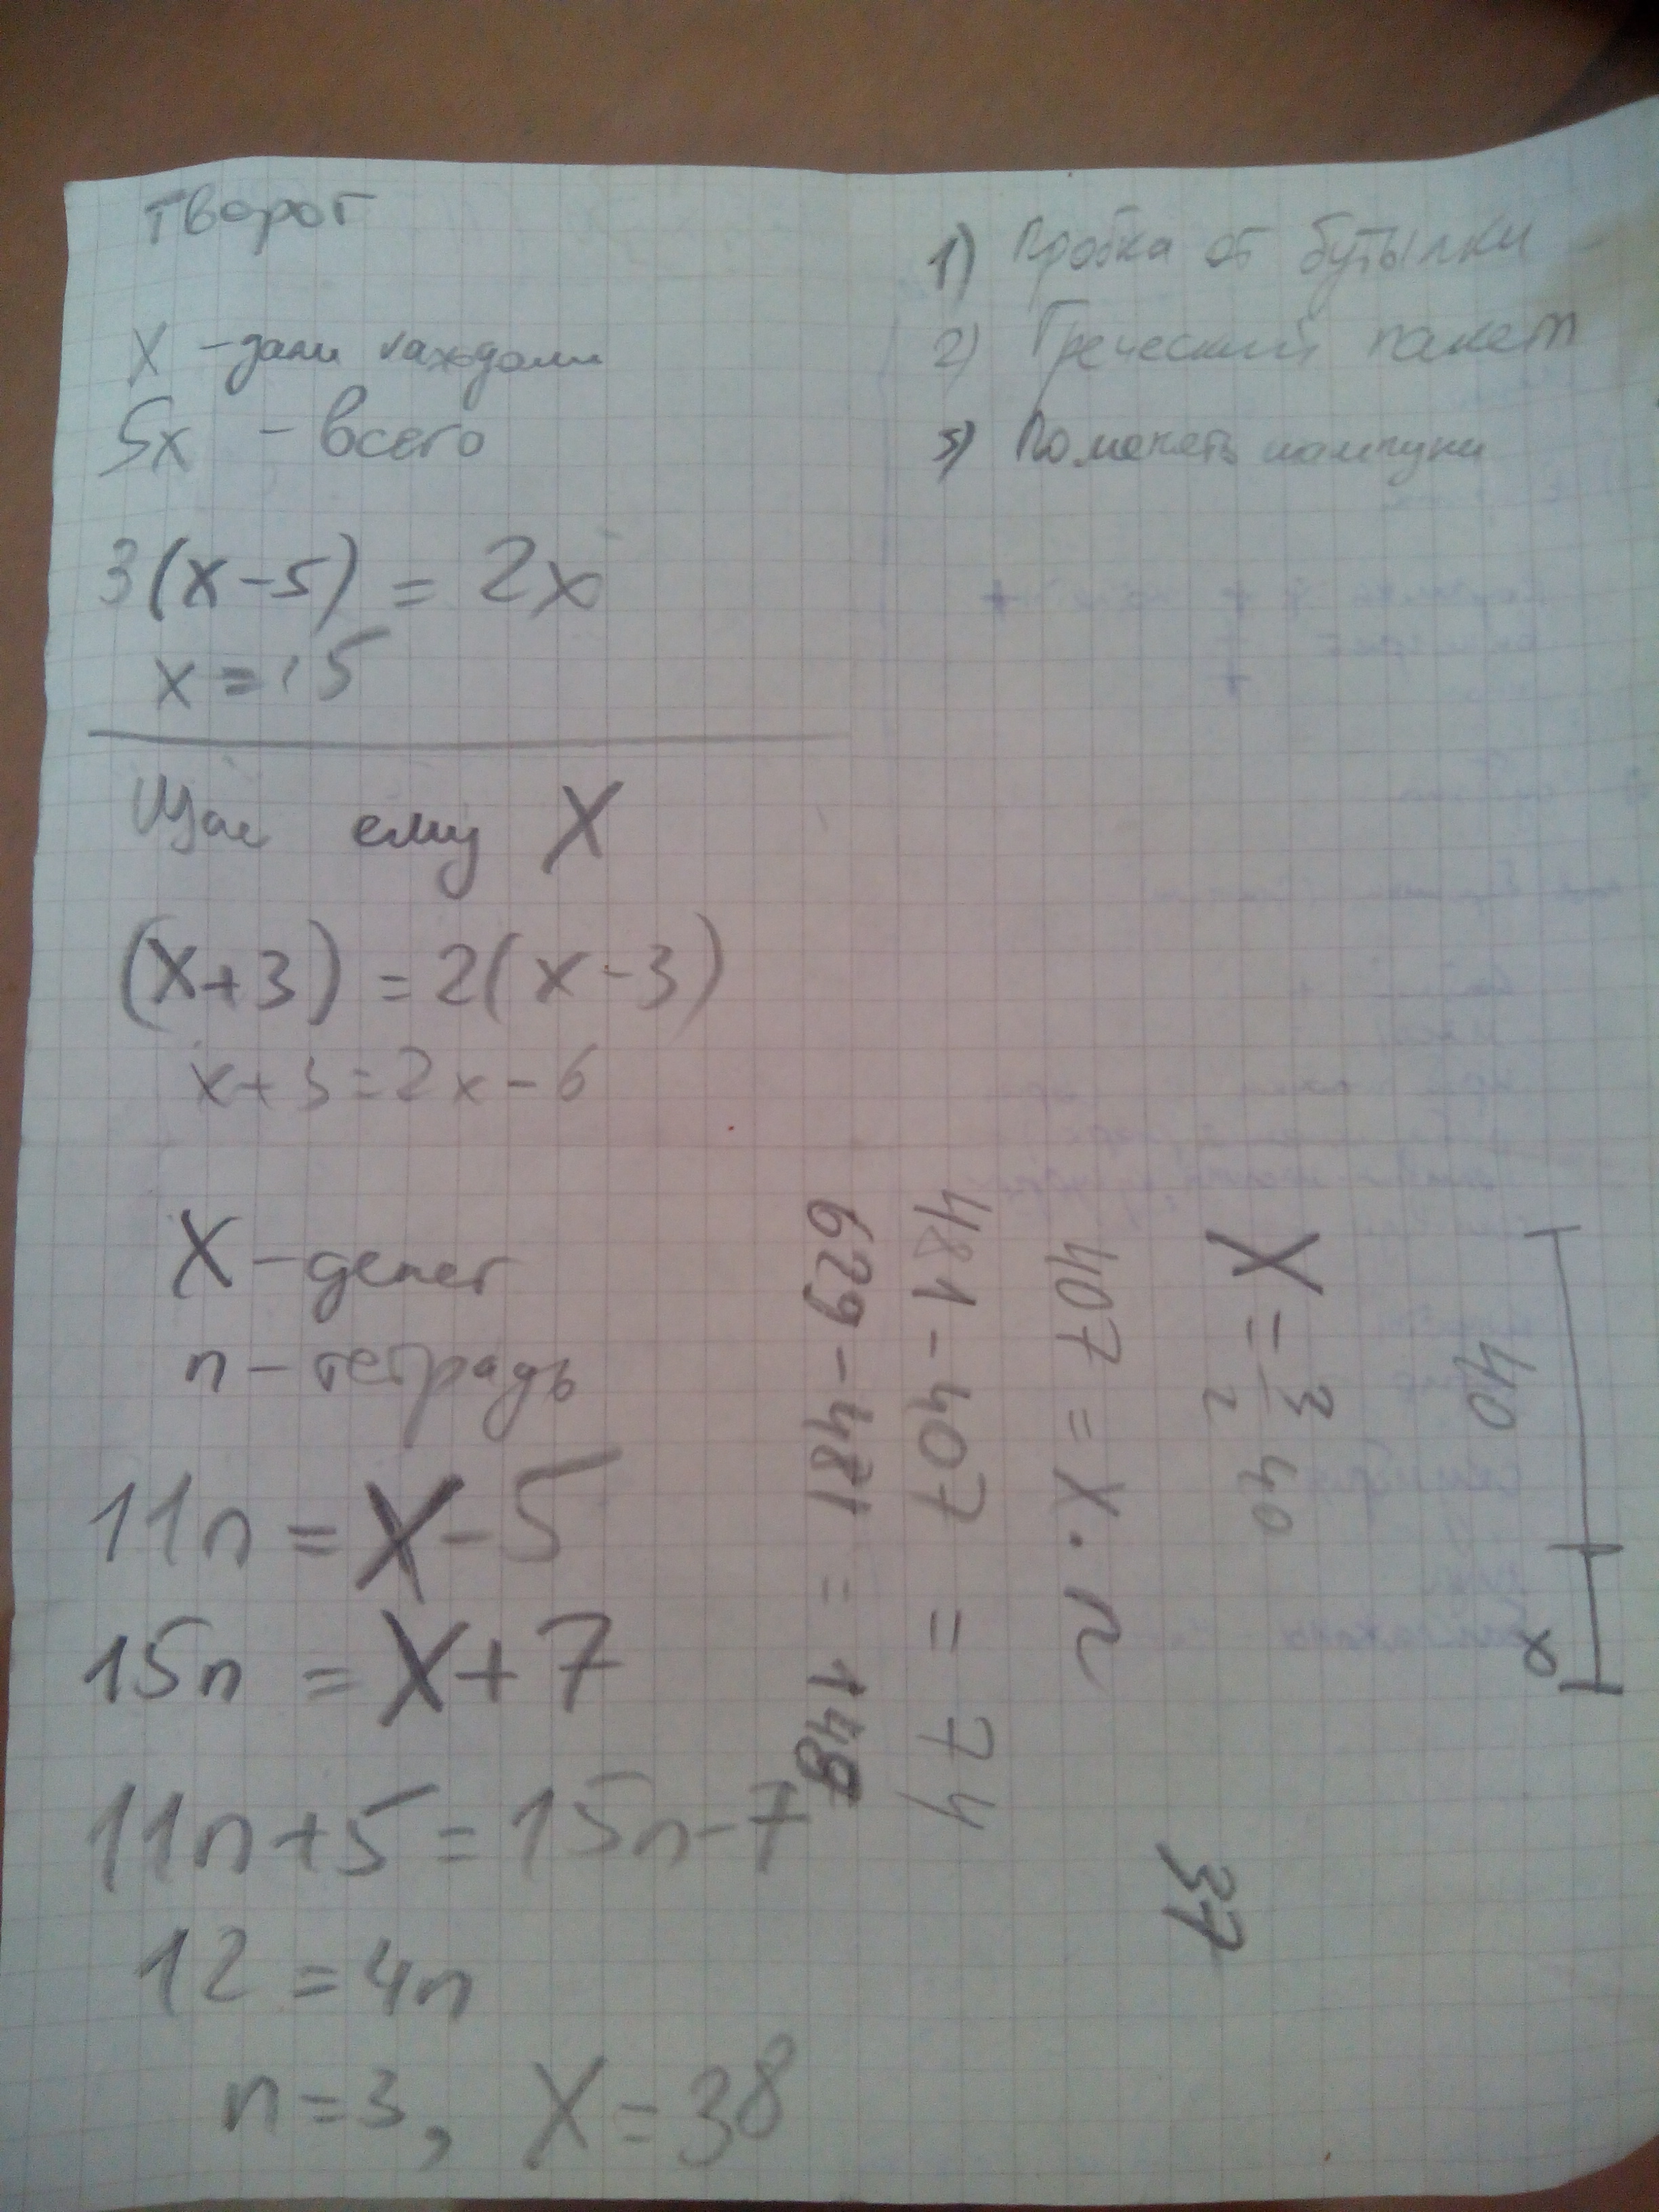 творог
X - дали каждому
5x - всего
3(x-5) = 2x
x = 15
ему X
(x+3) = 2(x-3)
x+3=2x-6
X - денег
n - тетрадь
11n = X-5
15n = X+7
11n+5=15n-7
12 = 4n
n=3, X=38
1) Пробка от бутылки
2) Греческий пакет
3) Поменять лампочки
40
x
X = 3/2 40
407 = X · n
481 - 407 = 74
629 - 481 = 148
37